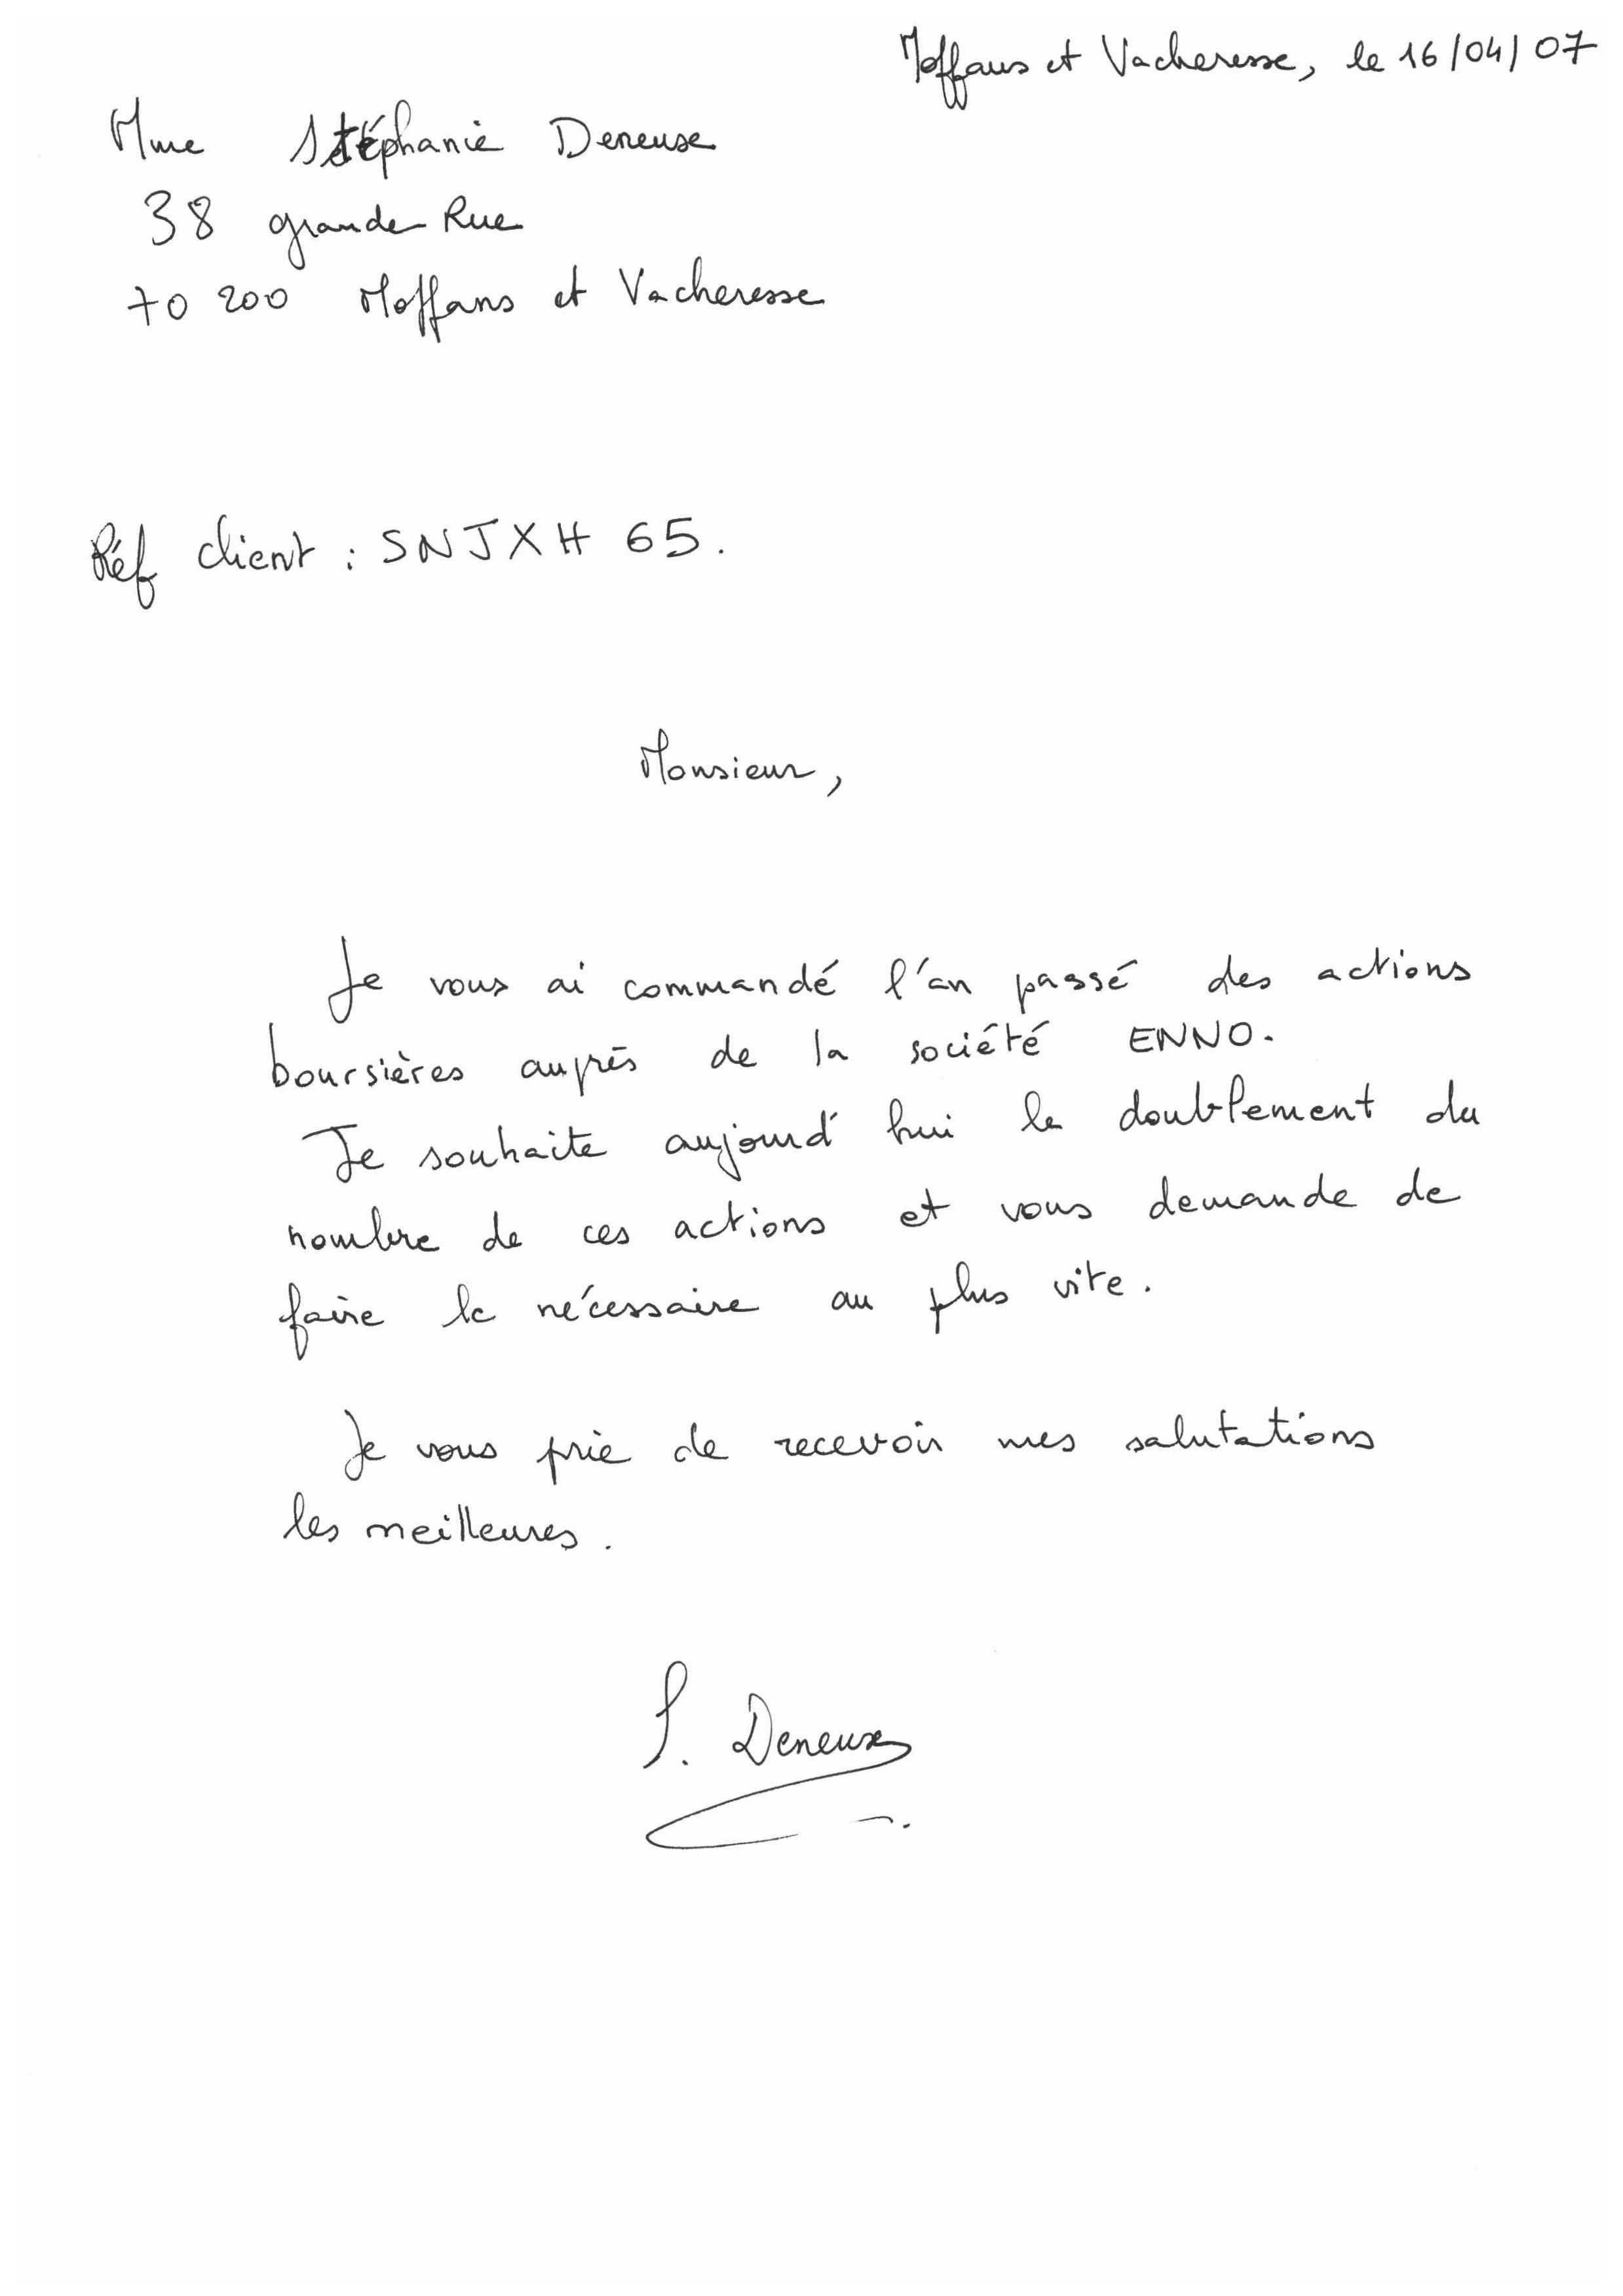 Moffans et Vacheresse, le 16/04/07
Mme Stéphanie Deneuse
38 grande Rue
70 200 Moffans et Vacheresse
Réf client : SNJXH 65.
Monsieur,
Je vous ai commandé l'an passé des actions
boursières auprès de la société ENNO.
Je souhaite aujourd'hui le doublement du
nombre de ces actions et vous demande de
faire le nécessaire au plus vite.
Je vous prie de recevoir mes salutations
les meilleures.
S. Deneuse